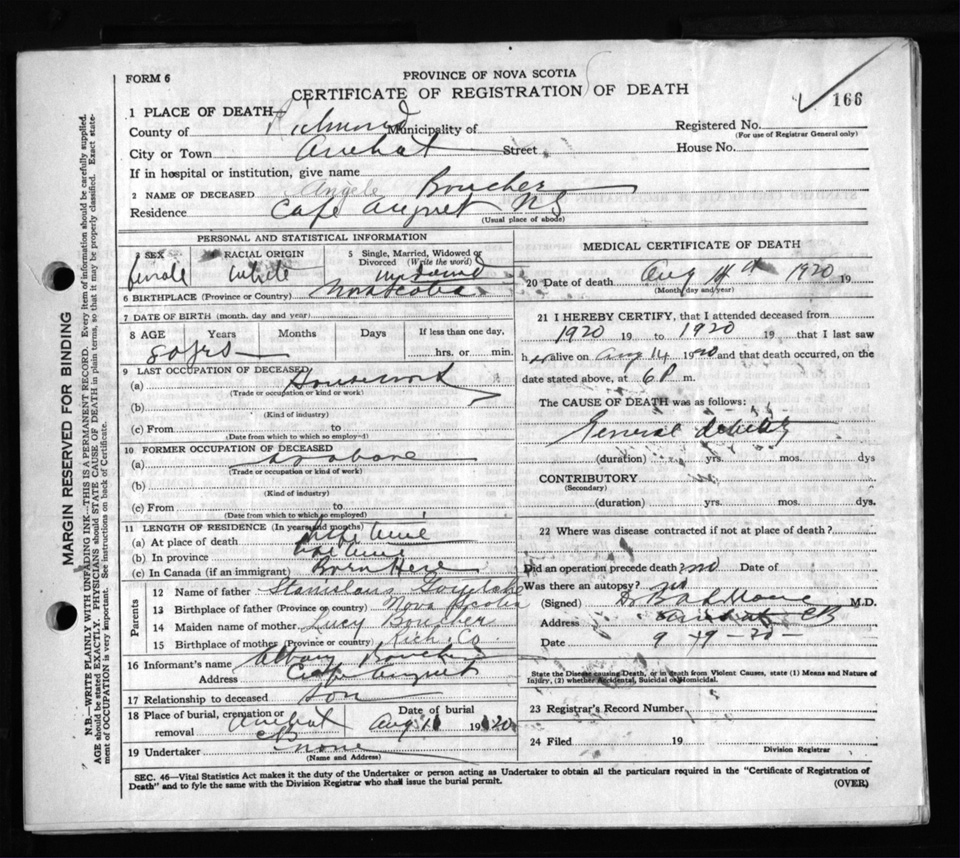 FORM 6
PROVINCE OF NOVA SCOTIA
CERTIFICATE OF REGISTRATION OF DEATH
166
1 PLACE OF DEATH
County of Richmond Municipality of
Registered No.
(For use of Registrar General only)
City or Town Arichat Street
House No.
If in hospital or institution, give name
2 NAME OF DECEASED Angele Boucher
Residence Cape Auguet NS
(Usual place of abode)
PERSONAL AND STATISTICAL INFORMATION
3 SEX female
RACIAL ORIGIN White
5 Single, Married, Widowed or Divorced (Write the word) widowed
6 BIRTHPLACE (Province or Country) Nova Scotia
7 DATE OF BIRTH (month, day and year)
8 AGE Years Months Days If less than one day,
80 yrs
hrs. or min.
9 LAST OCCUPATION OF DECEASED
(a) Housework
(Trade or occupation or kind of work)
(b)
(Kind of industry)
(c) From to
(Date from which to which so employed)
10 FORMER OCCUPATION OF DECEASED
(a) as above
(Trade or occupation or kind of work)
(b)
(Kind of industry)
(c) From to
(Date from which to which so employed)
11 LENGTH OF RESIDENCE (In years and months)
(a) At place of death life time
(b) In province life time
(c) In Canada (if an immigrant) Born Here
Parents
12 Name of father Stanislaus
13 Birthplace of father (Province or country) Nova Scotia
14 Maiden name of mother Lucy Boucher
15 Birthplace of mother (Province or country) Rich. Co.
16 Informant's name Boucher
Address Cape Auguet
17 Relationship to deceased Son
18 Place of burial, cremation or removal Arichat CB
Date of burial
Aug 1920
19 Undertaker none
(Name and Address)
MEDICAL CERTIFICATE OF DEATH
20 Date of death Aug 14th 1920 19
(Month, day and year)
21 I HEREBY CERTIFY, that I attended deceased from
1920 19 to 1920 19 that I last saw
her alive on Aug 14 1920 and that death occurred, on the
date stated above, at 6 P m.
The CAUSE OF DEATH was as follows:
General debility
(duration) yrs. mos. dys
CONTRIBUTORY
(Secondary)
(duration) yrs. mos. dys.
22 Where was disease contracted if not at place of death?
Did an operation precede death? no Date of
Was there an autopsy? no
(Signed) M.D.
Address Arichat CB
Date 9-19-20-
State the Disease causing Death, or in death from Violent Causes, state (1) Means and Nature of
Injury, (2) whether Accidental, Suicidal or Homicidal.
23 Registrar's Record Number
24 Filed 19
Division Registrar
SEC. 46—Vital Statistics Act makes it the duty of the Undertaker or person acting as Undertaker to obtain all the particulars required in the "Certificate of Registration of
Death" and to fyle the same with the Division Registrar who shall issue the burial permit.
(OVER)
MARGIN RESERVED FOR BINDING
N.B.—WRITE PLAINLY WITH UNFADING INK—THIS IS A PERMANENT RECORD. Every item of information should be carefully supplied.
AGE should be stated EXACTLY. PHYSICIANS should STATE CAUSE OF DEATH in plain terms, so that it may be properly classified. Exact state-
ment of OCCUPATION is very important. See instructions on back of Certificate.